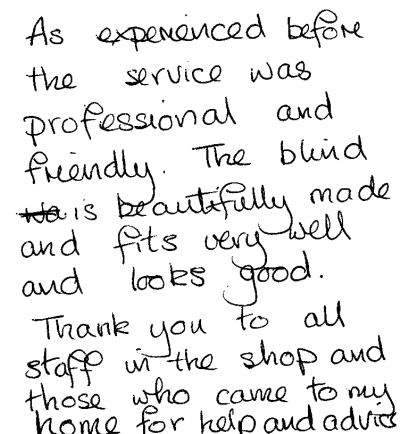 As experienced before
the service was
professional and
friendly. The blind
is beautifully made
and fits very well
and looks good.
Thank you to all
staff in the shop and
those who came to my
home for help and advice